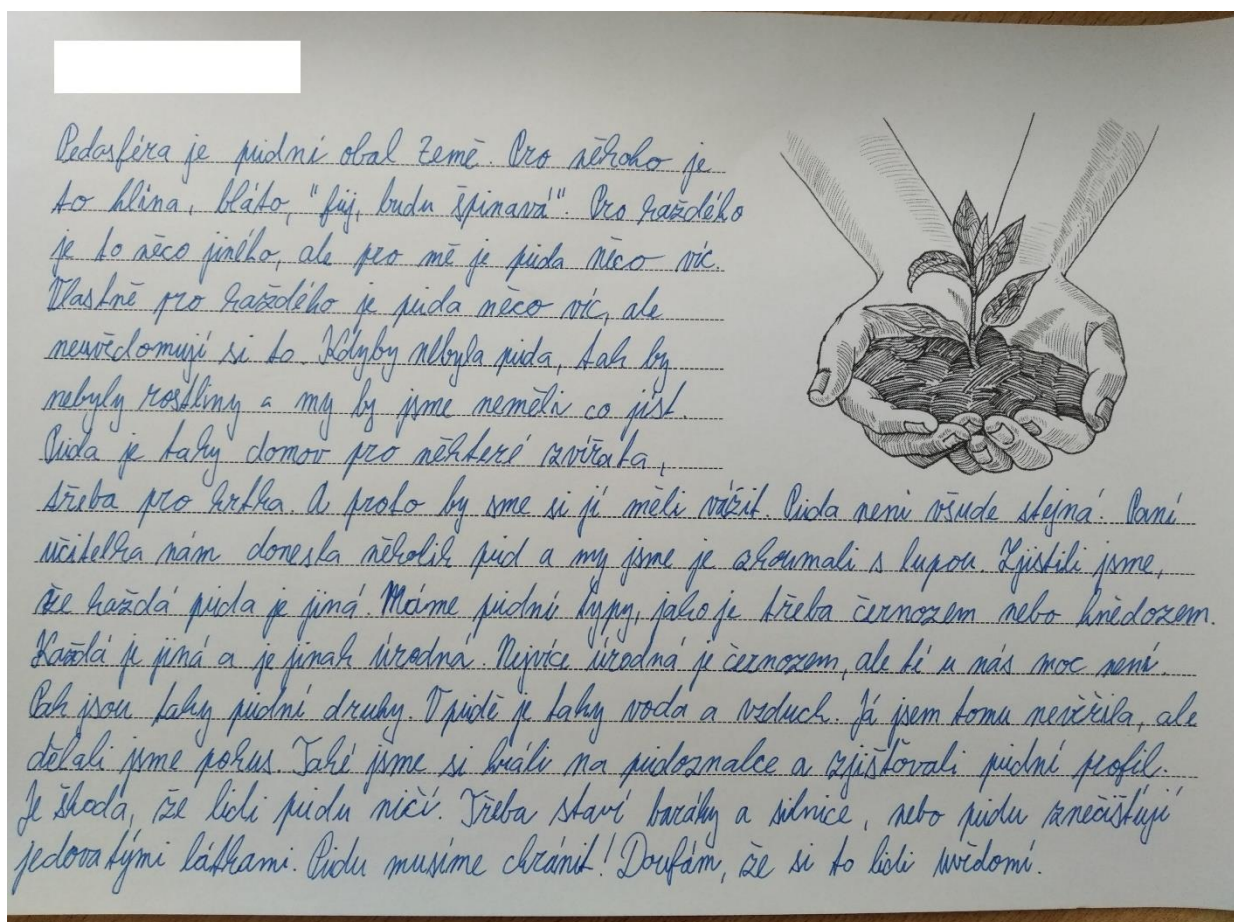 Pedosféra je půdní obal Země. Pro někoho je
to hlína, bláto, "fůj, budu špinavá". Pro každého
je to něco jiného, ale pro mě je půda něco víc.
Vlastně pro každého je půda něco víc, ale
neuvědomují si to. Kdyby nebyla půda, tak by
nebyly rostliny a my by jsme neměli co jíst.
Půda je taky domov pro některé zvířata,
třeba pro krtka. A proto by sme si jí měli vážit. Půda není všude stejná. Paní
učitelka nám donesla několik půd a my jsme je zkoumali s lupou. Zjistili jsme,
že každá půda je jiná. Máme půdní typy, jako je třeba černozem nebo hnědozem.
Každá je jiná a je jinak úrodná. Nejvíce úrodná je černozem, ale té u nás moc není.
Pak jsou taky půdní druhy. V půdě je taky voda a vzduch. Já jsem tomu nevěřila, ale
dělali jsme pokus. Také jsme si hráli na půdoznalce a zjišťovali půdní profil.
Je škoda, že lidi půdu ničí. Třeba staví baráky a silnice, nebo půdu znečišťují
jedovatými látkami. Půdu musíme chránit! Doufám, že si to lidi uvědomí.